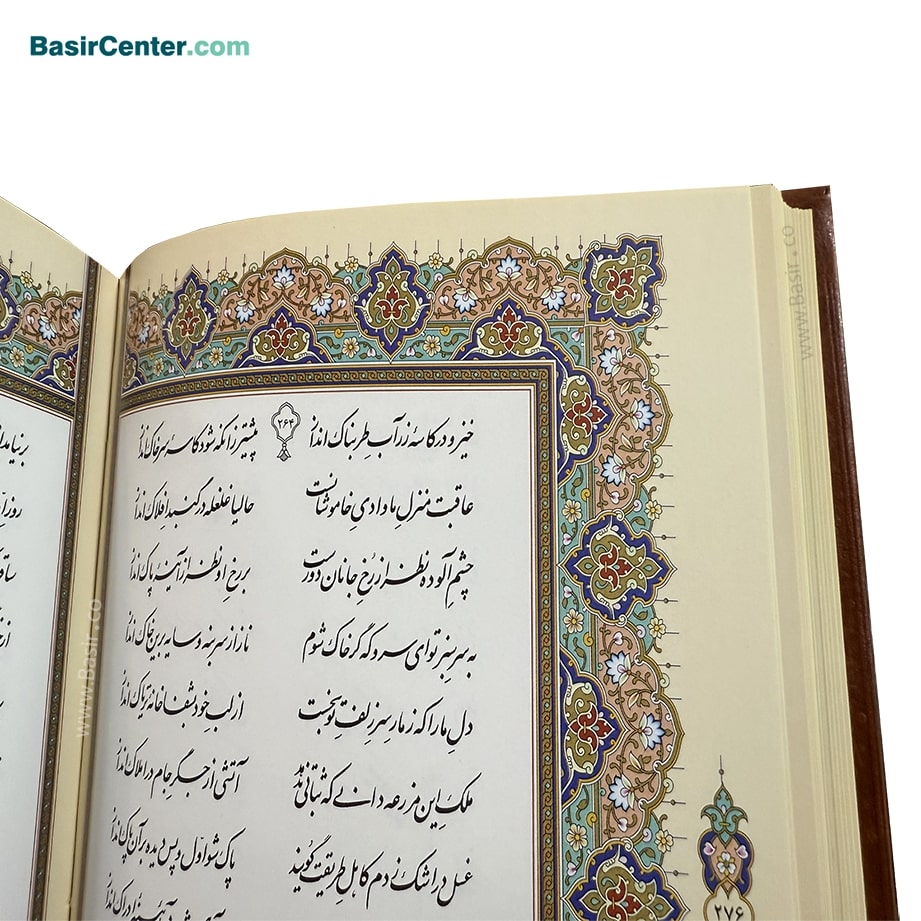 BasirCenter.com
۲۶۴
خیز و در کاسهٔ زر آب طربناک انداز پیشتر زانکه شود کاسهٔ سر خاک انداز
عاقبت منزلِ ما وادیِ خاموشانست حالیا غلغله در گنبد افلاک انداز
چشمِ آلوده نظر از رُخِ جانان دورست بر رخِ او نظر از آینهٔ پاک انداز
به سرِ سبزِ تو ای سرو که گر خاک شوم ناز از سر بنه و سایه برین خاک انداز
دلِ ما را که ز مارِ سرِ زلفِ تو بخست از لبِ خود بشفاخانهٔ تریاک انداز
ملکِ این مزرعه دانی که ثباتی ندهد آتشی از جگرِ جام در املاک انداز
غسل در اشک زدم کاهلِ طریقت گویند پاک شو اوّل و پس دیده بر آن پاک انداز
۲۷۶
www.Basir.co
www.Basir.co